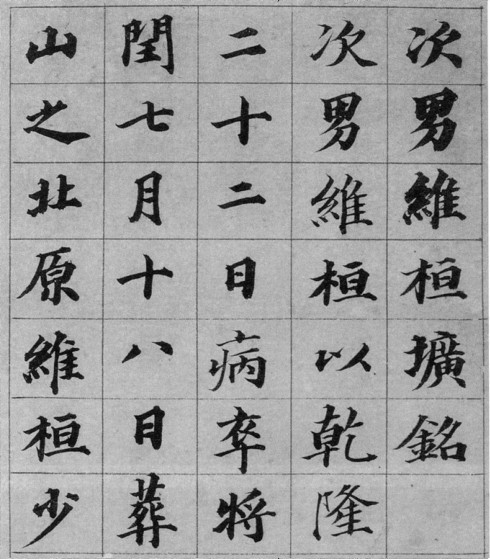 次男維桓壙銘
次男維桓以乾隆
二十二日病卒將
閏七月十八日葬
山之北原維桓少